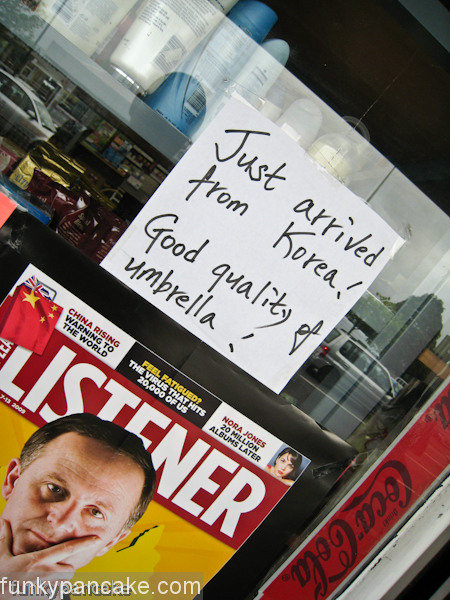 Just arrived
from Korea!
Good quality of
umbrella!
CHINA RISING
WARNING TO
THE WORLD
FEEL FATIGUED?
THE VIRUS THAT HITS
20,000 OF US
NORA JONES
20 MILLION
ALBUMS LATER
LISTENER
Coca-Cola
funkypancake.com